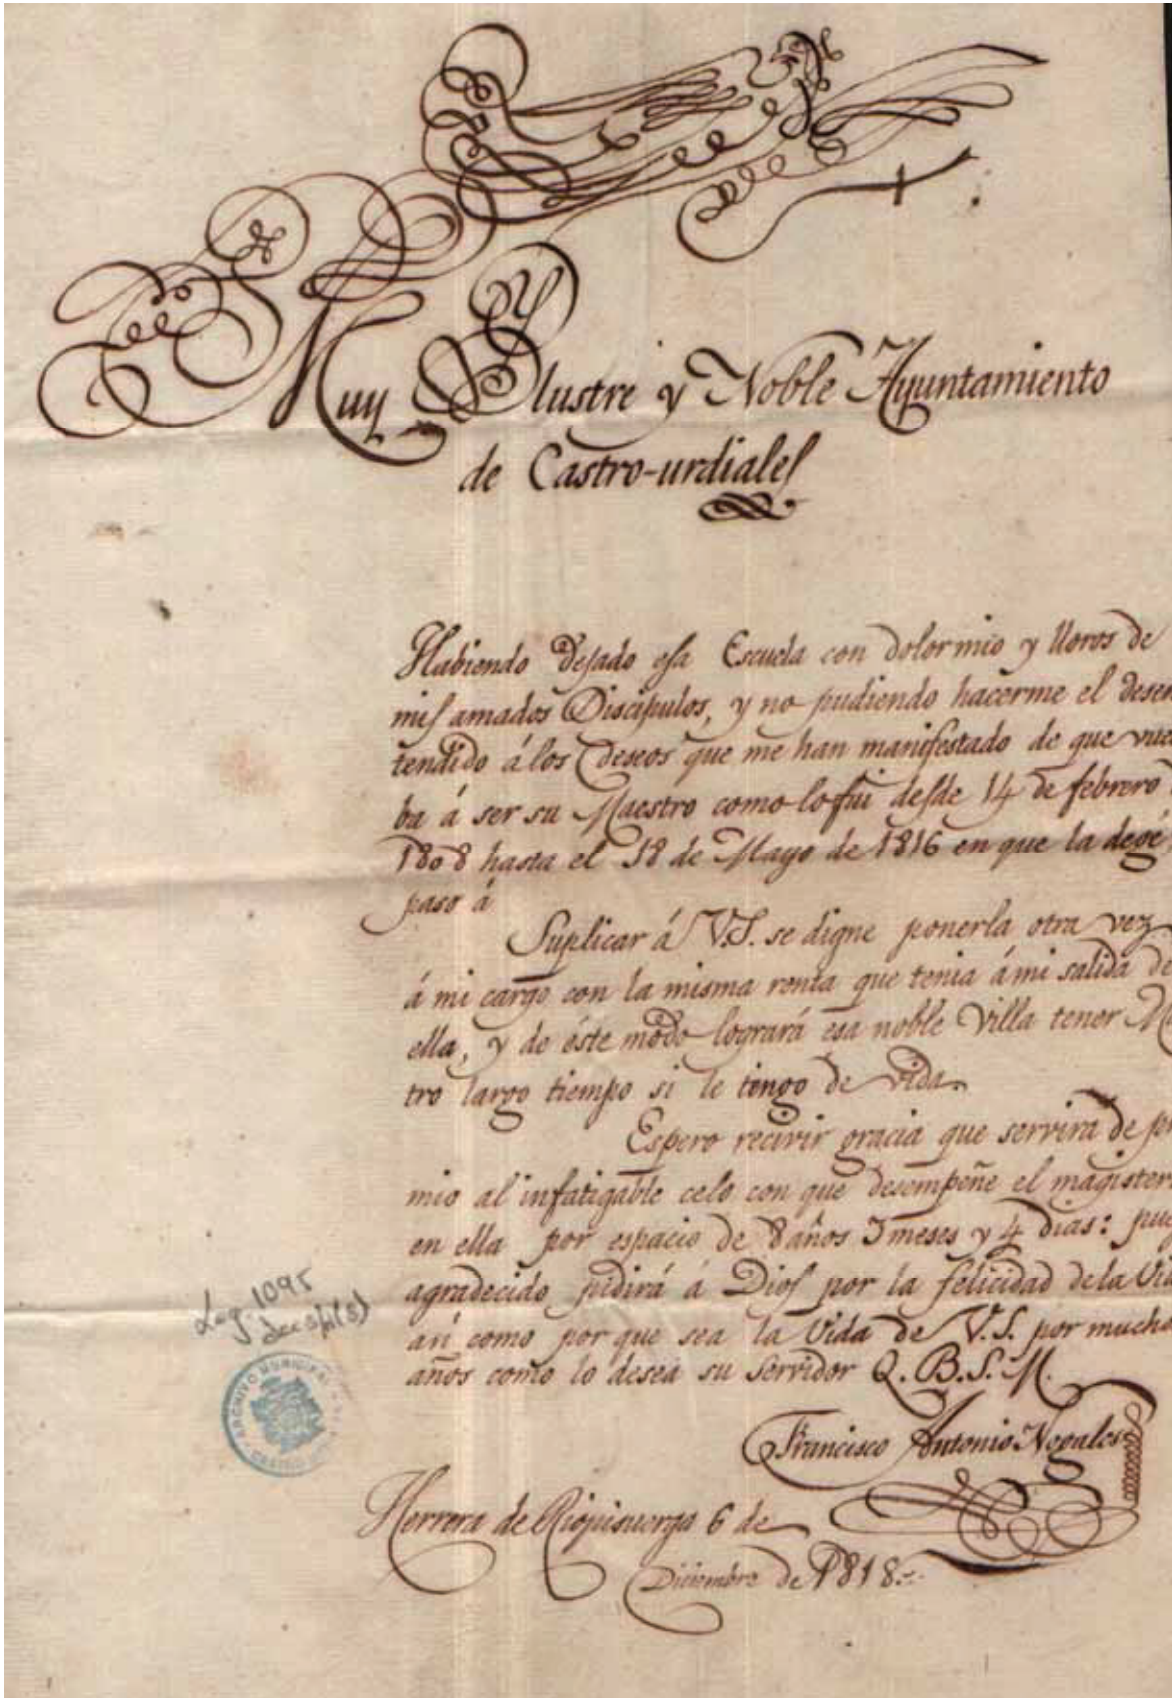 Muy Ylustre y Noble Ayuntamiento
de Castro-urdiales
Habiendo dejado esa Escuela con dolor mio y lloros de
mis amados Discipulos, y no pudiendo hacerme el desen
tendido á los deseos que me han manifestado de que vuel
ba á ser su Maestro como lo fui desde 14 de febrero
1808 hasta el 18 de Mayo de 1816 en que la degé,
paso á
Suplicar á V.S. se digne ponerla otra vez
á mi cargo con la misma renta que tenia á mi salida de
ella, y de éste modo logrará esa noble Villa tener
tro largo tiempo si le tengo de vida.
Espero recivir gracia que servira de pre
mio al infatigable celo con que desempeñe el magisteri
en ella por espacio de 8 años 3 meses y 4 dias: pues
agradecido pidirá á Dios por la felicidad de la Vi
asi como por que sea la Vida de V.S. por mucho
años como lo desea su Servidor Q. B. S. M.
Francisco Antonio Nogales
Herrera de Riopisuerga 6 de
Diciembre de 1818.
Leg. 1095
ARCHIVO MUNICIPAL
CASTRO